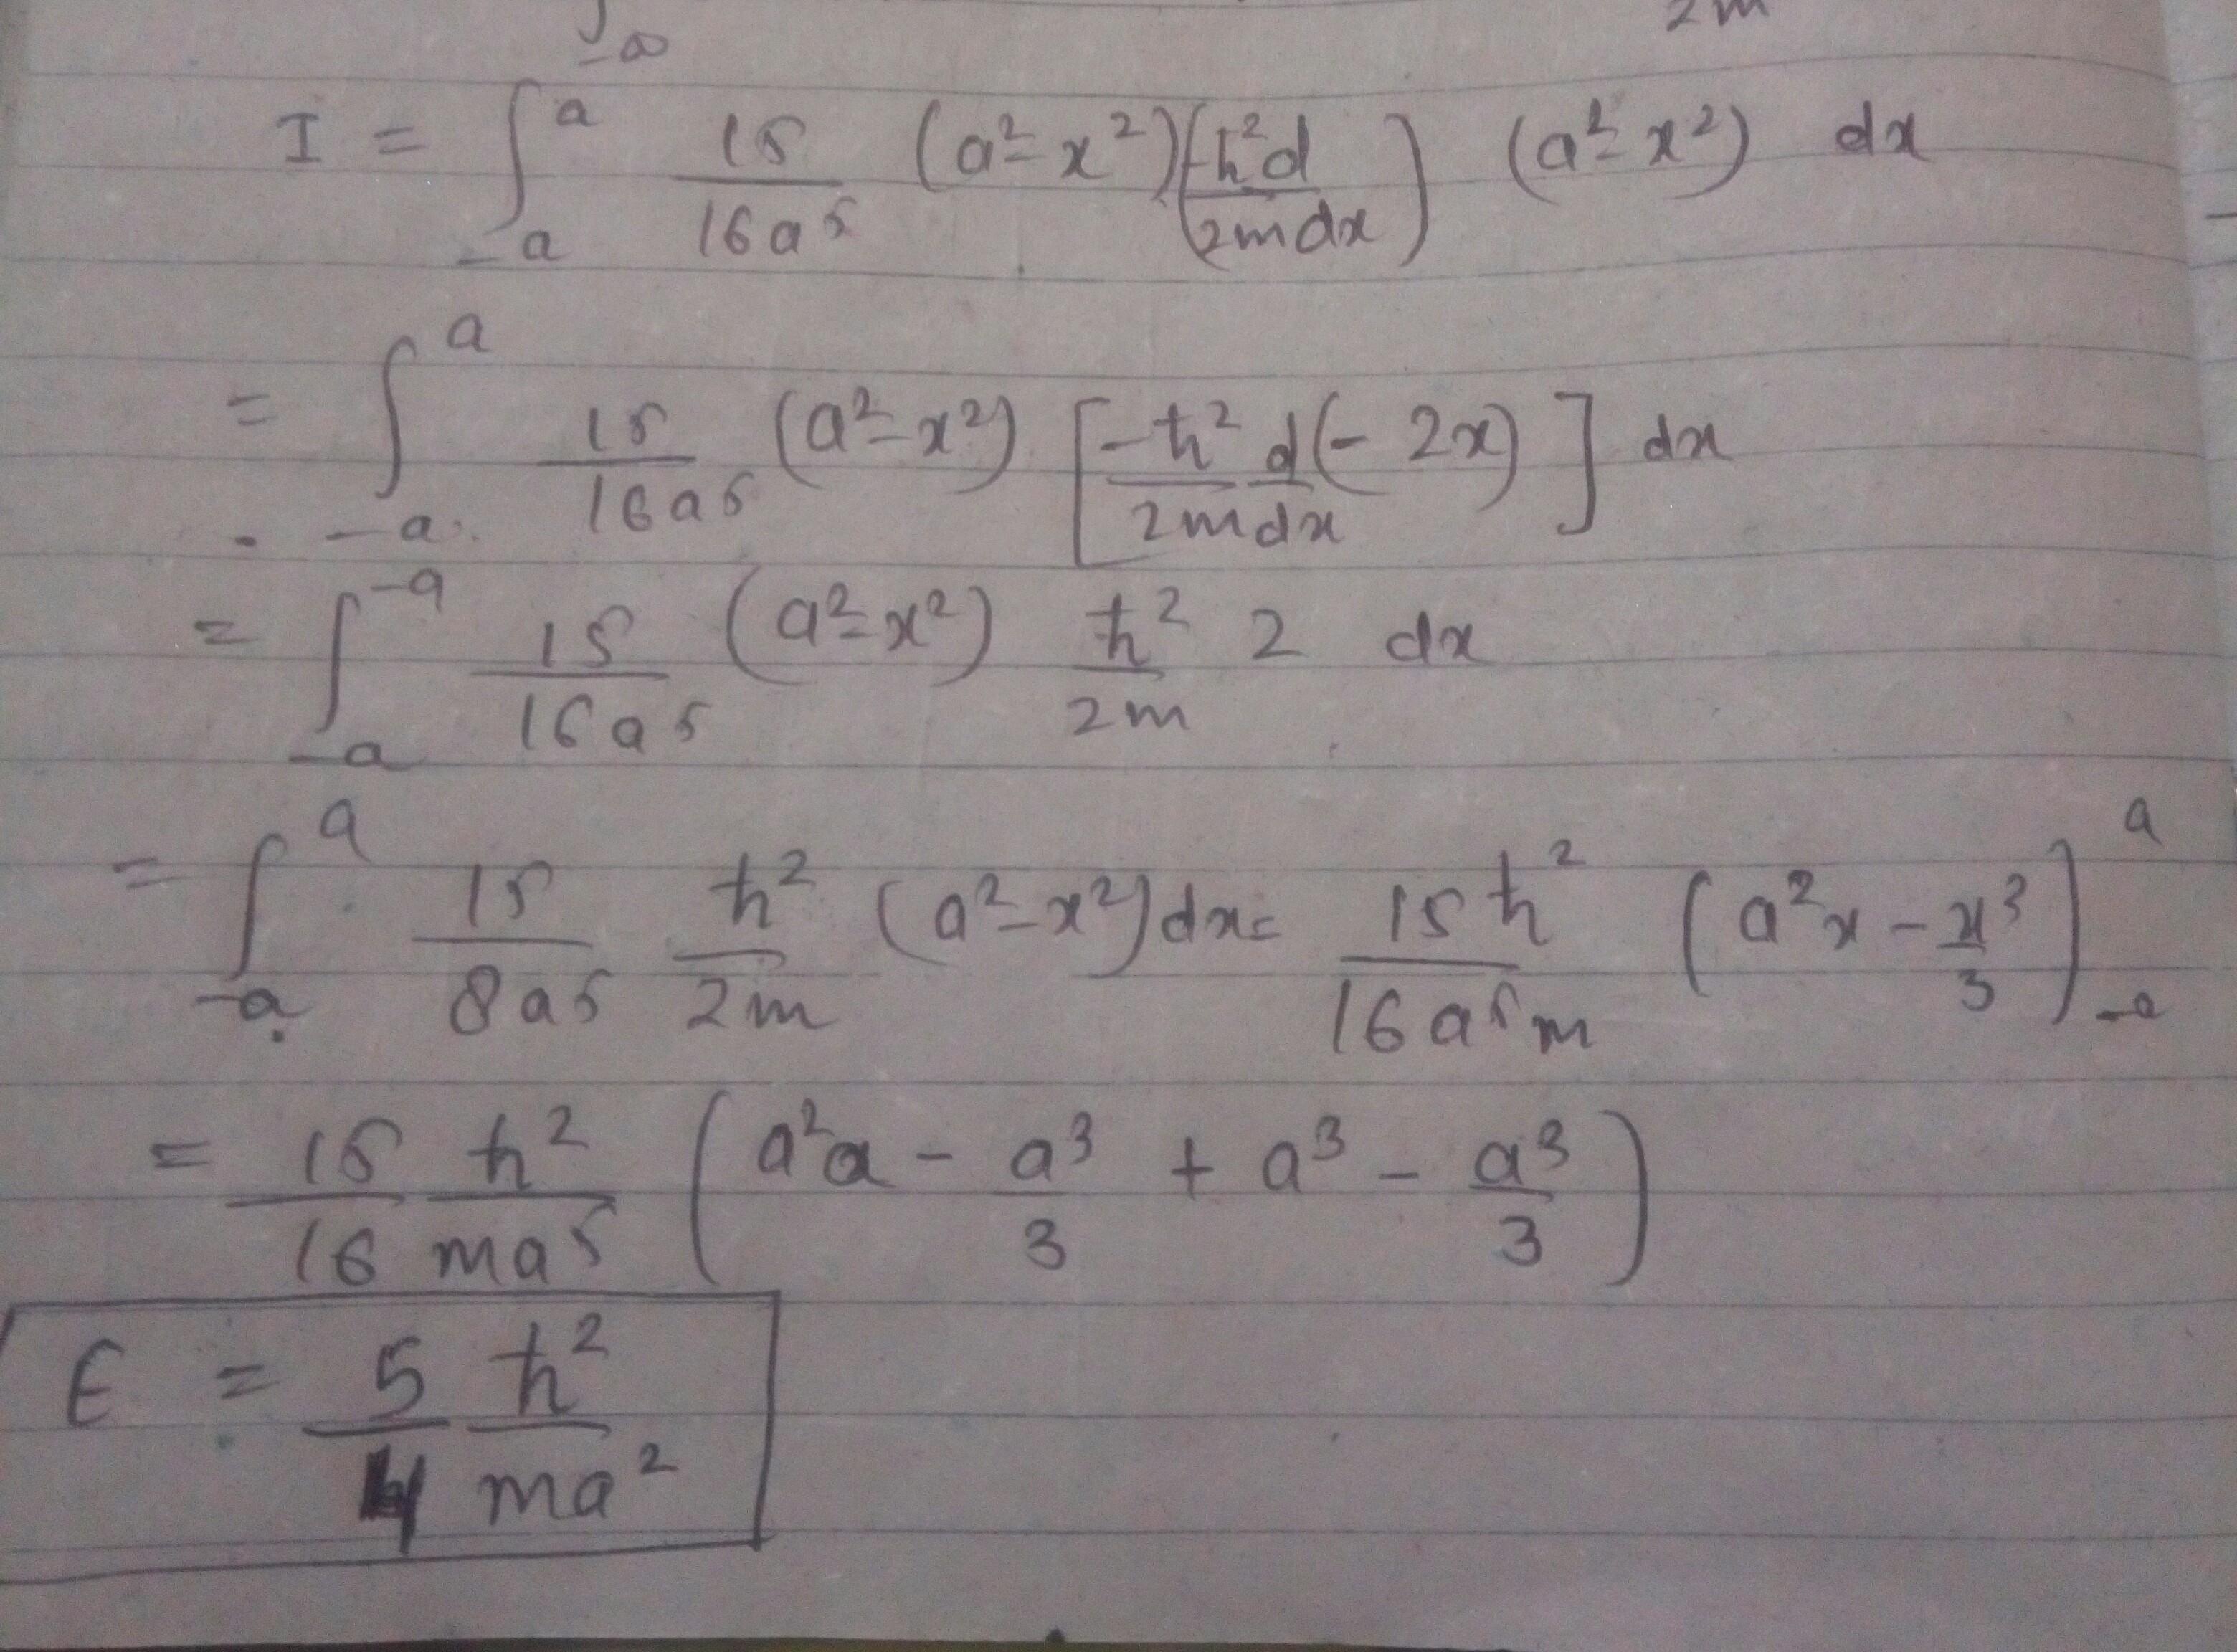 ∫_{-∞} 2m
I = ∫_{-a}^{a} 15/16a⁵ (a² - x²) (-ħ² d/2m dx) (a² - x²) dx
= ∫_{-a}^{a} 15/16a⁵ (a² - x²) [-ħ²/2m d/dx (-2x)] dx
= ∫_{-a}^{-a} 15/16a⁵ (a² - x²) ħ²/2m 2 dx
= ∫_{-a}^{a} 15/8a⁵ ħ²/2m (a² - x²) dx = 15ħ²/16a⁵m (a²x - x³/3)_{-a}^{a}
= 15/16 ħ²/ma⁵ (a²a - a³/3 + a³ - a³/3)
E = 5/4 ħ²/ma²